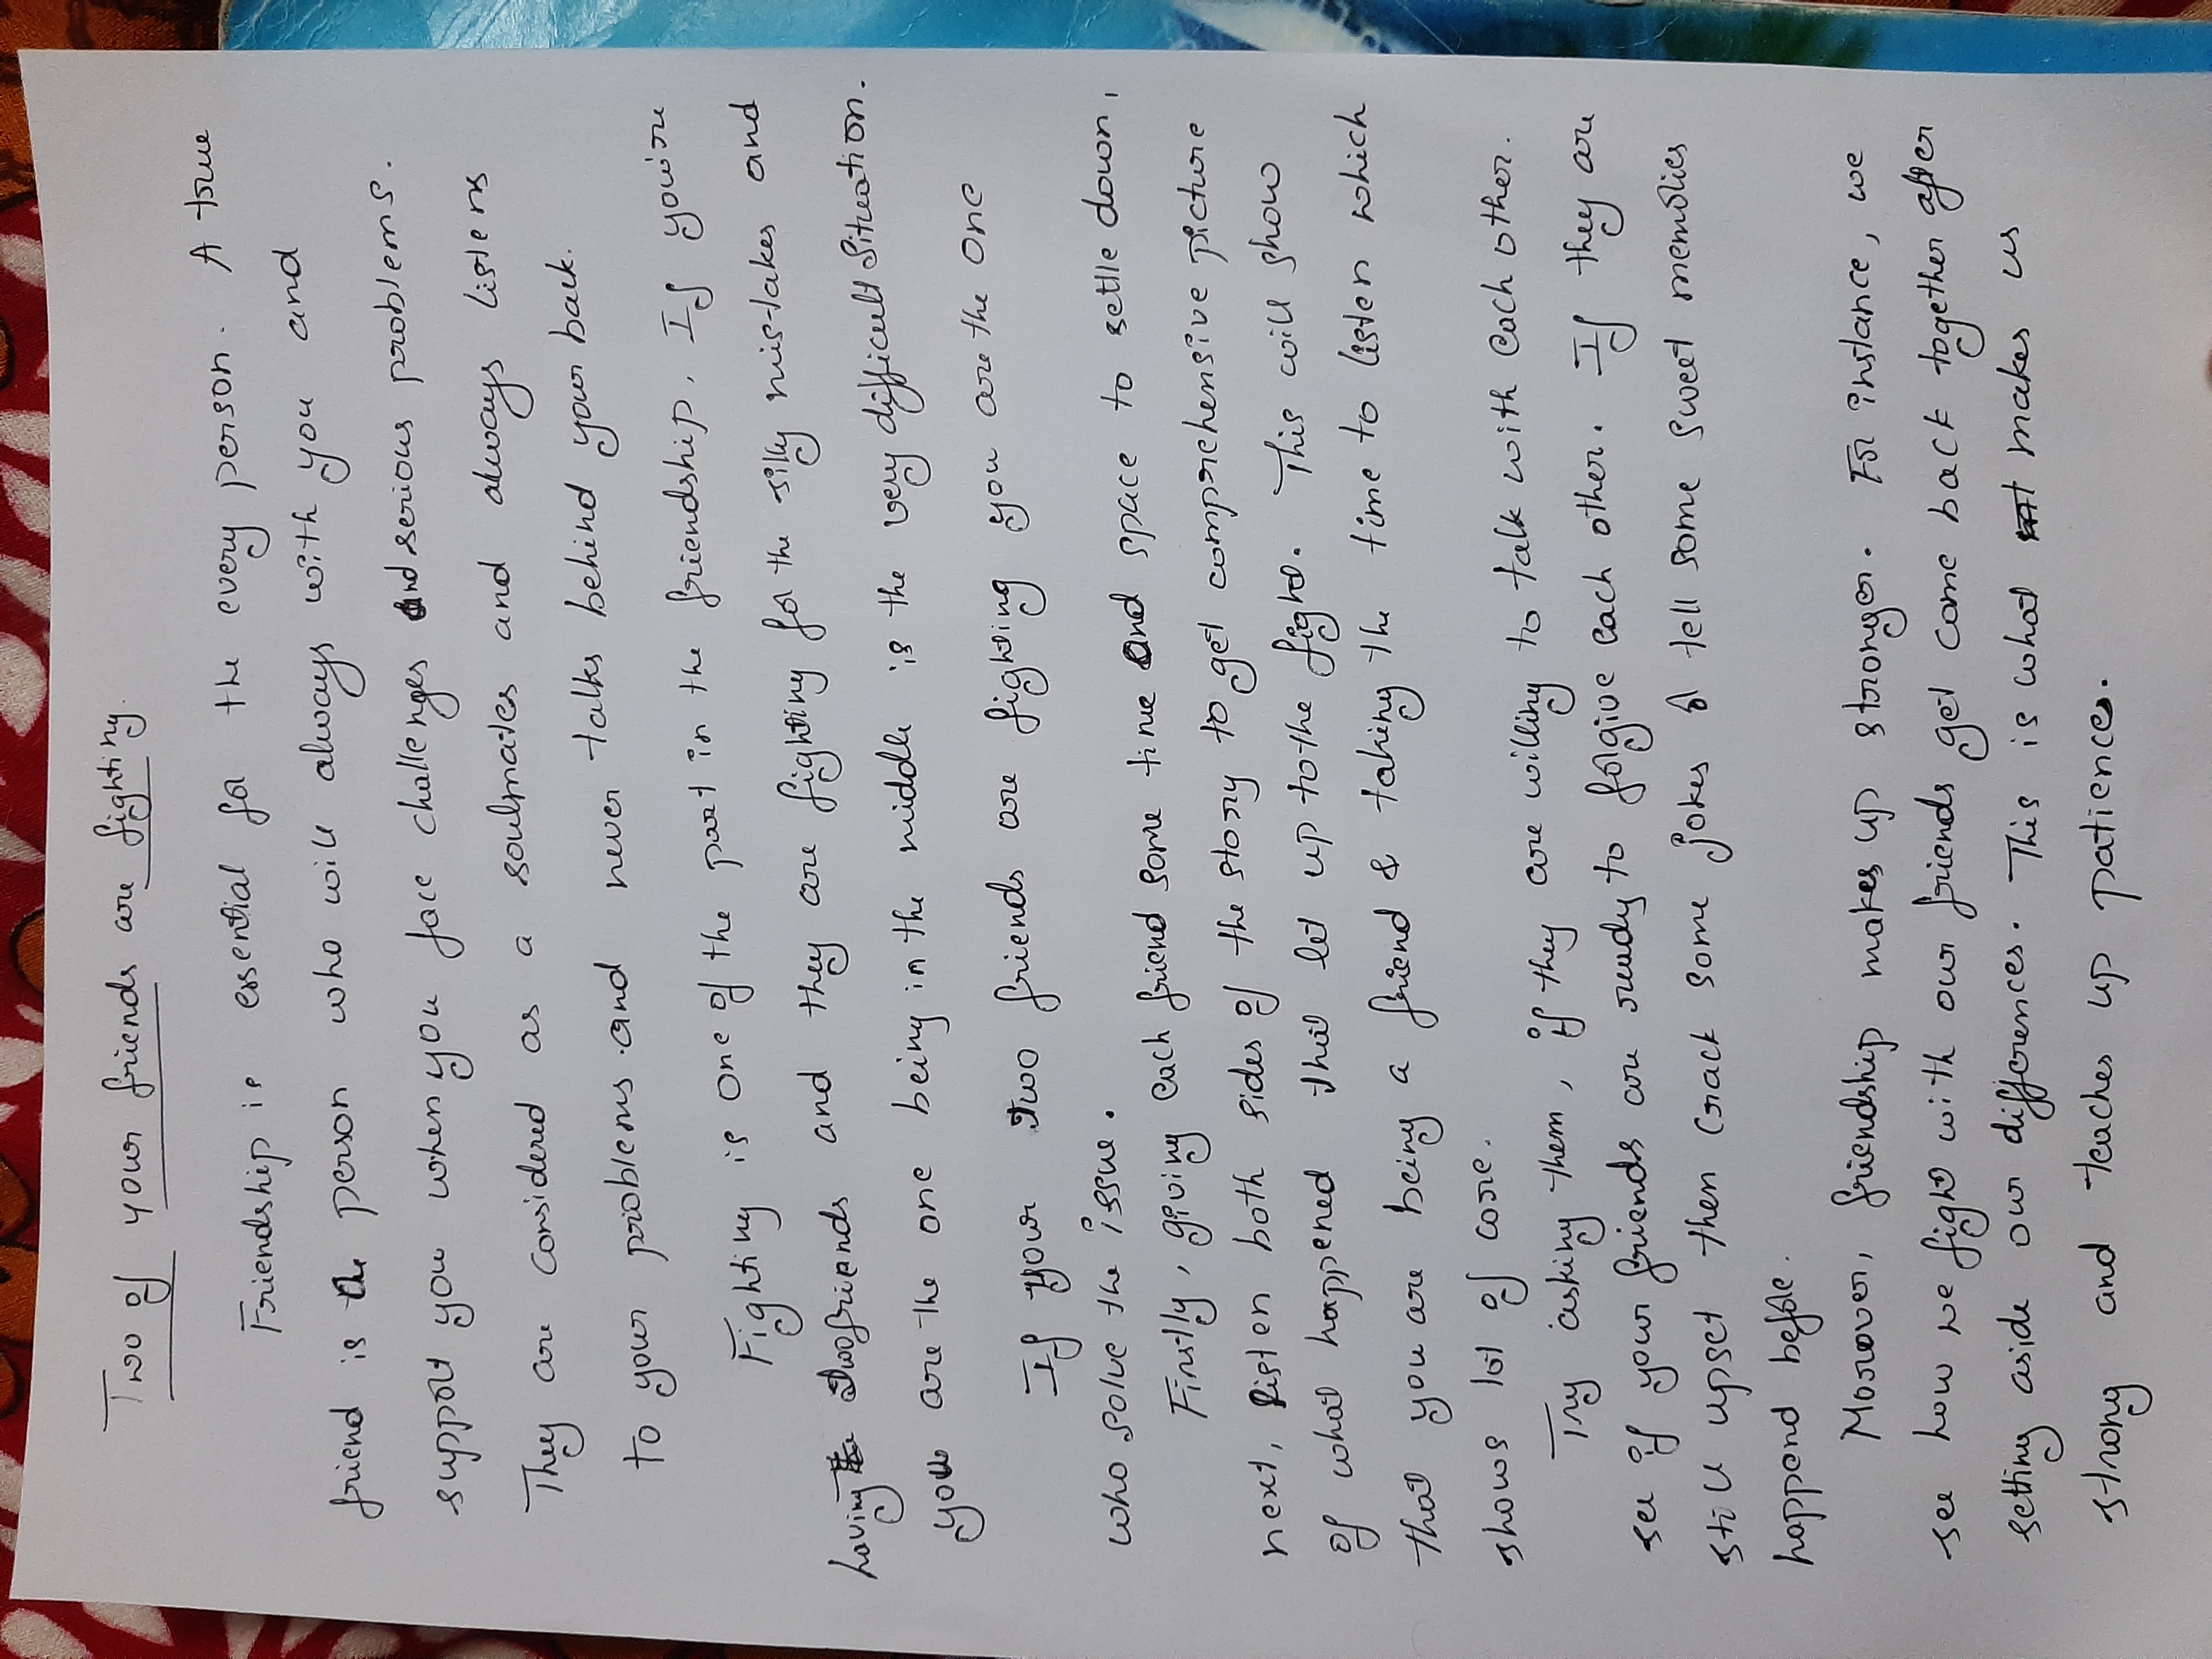 Two of your friends are fighting.
Friendship is essential for the every person. A true
friend is the person who will always with you and
support you when you face challenges and serious problems.
They are considered as a soulmates and always listens
to your problems and never talks behind your back.
Fighting is one of the part in the friendship, If you're
having two friends and they are fighting for the silly mistakes and
you are the one being in the middle is the very difficult situation.
If your two friends are fighting you are the one
who solve the issue.
Firstly, giving each friend some time and space to settle down,
next, listen both sides of the story to get comprehensive picture
of what happened that let up to the fight. This will show
that you are being a friend & taking the time to listen which
shows lot of care.
Try asking them, if they are willing to talk with each other.
see if your friends are ready to forgive each other. If they are
still upset then crack some jokes or tell some sweet memories
happend before.
Morover, friendship makes up stronger. For instance, we
see how we fight with our friends get come back together after
setting aside our differences. This is what makes us
strong and teaches up patiences.